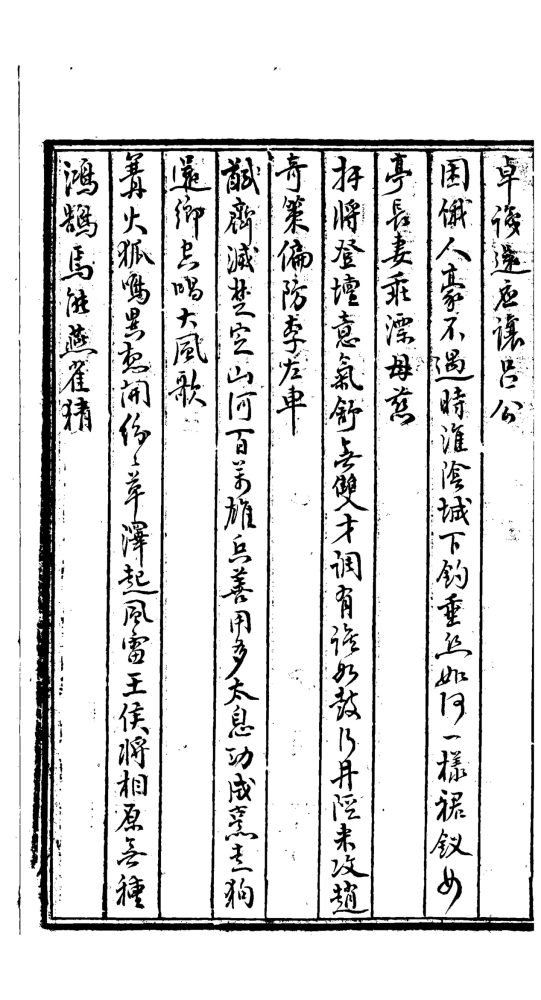 卓識還應讓呂公
困餓人豪不遇時淮陰城下釣垂絲如何一樣裙釵女
亭長妻乖漂母慈
拜將登壇意氣舒無雙才調有誰如鼓行井陘來攻趙
奇策偏防李左車
馘齊滅楚定山河百萬雄兵善用多太息功成烹走狗
還鄉空唱大風歌
篝火狐鳴異想開紛〻草澤起風雷王侯將相原無種
鴻鵠焉能燕雀猜